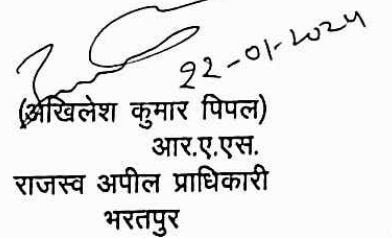 22-01-2024
(अखिलेश कुमार पिपल)
आर.ए.एस.
राजस्व अपील प्राधिकारी
भरतपुर